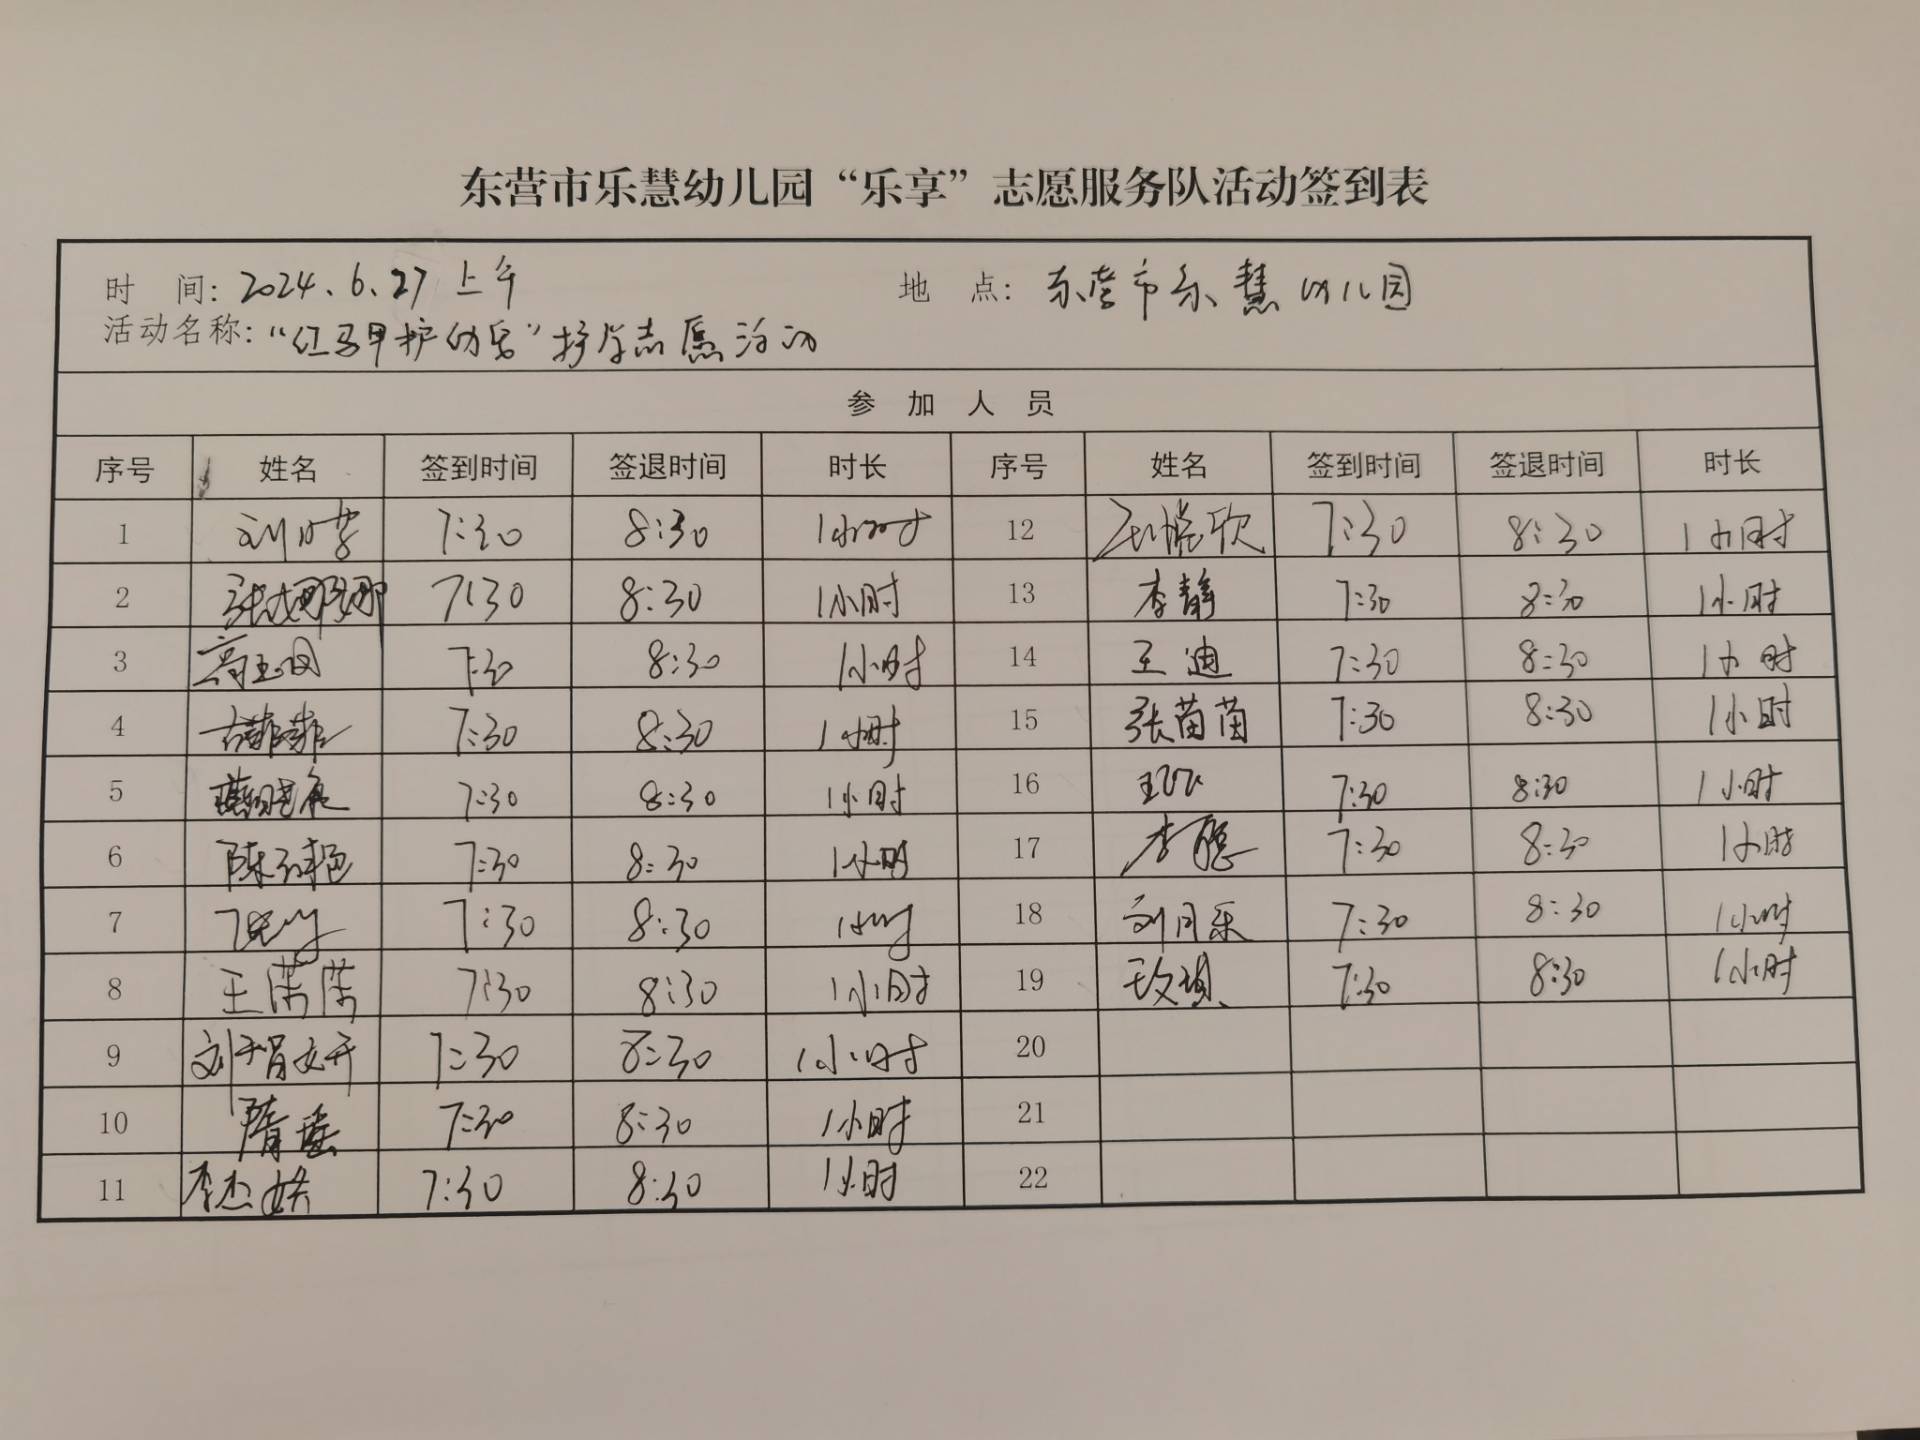 东营市乐慧幼儿园“乐享”志愿服务队活动签到表
时 间：2024.6.27 上午 地 点：东营市乐慧幼儿园
活动名称：“红马甲护幼岛”护学志愿活动
参 加 人 员
序号 姓名 签到时间 签退时间 时长 序号 姓名 签到时间 签退时间 时长
1 7:30 8:30 1小时 12 7:30 8:30 1小时
2 7:30 8:30 1小时 13 李静 7:30 8:30 1小时
3 7:30 8:30 1小时 14 王迪 7:30 8:30 1小时
4 7:30 8:30 1小时 15 张苗苗 7:30 8:30 1小时
5 7:30 8:30 1小时 16 7:30 8:30 1小时
6 7:30 8:30 1小时 17 李聪 7:30 8:30 1小时
7 7:30 8:30 1小时 18 刘月乐 7:30 8:30 1小时
8 王荣荣 7:30 8:30 1小时 19 7:30 8:30 1小时
9 7:30 8:30 1小时 20
10 7:30 8:30 1小时 21
11 7:30 8:30 1小时 22